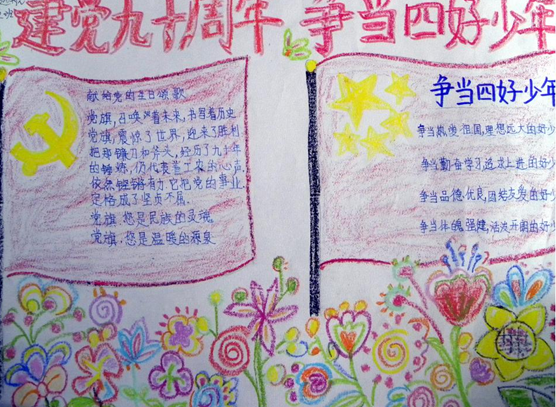 建党九十周年 争当四好少年
献给党的生日颂歌
党旗,召唤着未来,书写着历史
党旗,震惊了世界,迎来了胜利
把那镰刀和斧头,经历了九十年
的锤炼,仍代表着工农的心声
依然铿锵有力,它把党的事业
定格成了坚贞不屈.
党旗.您是民族的灵魂,
党旗.您是温暖的源泉
争当四好少年
争当热爱祖国,理想远大的好少
争当勤奋学习追求上进的好少
争当品德优良,团结友爱的好少
争当体魄强健,活泼开朗的好少